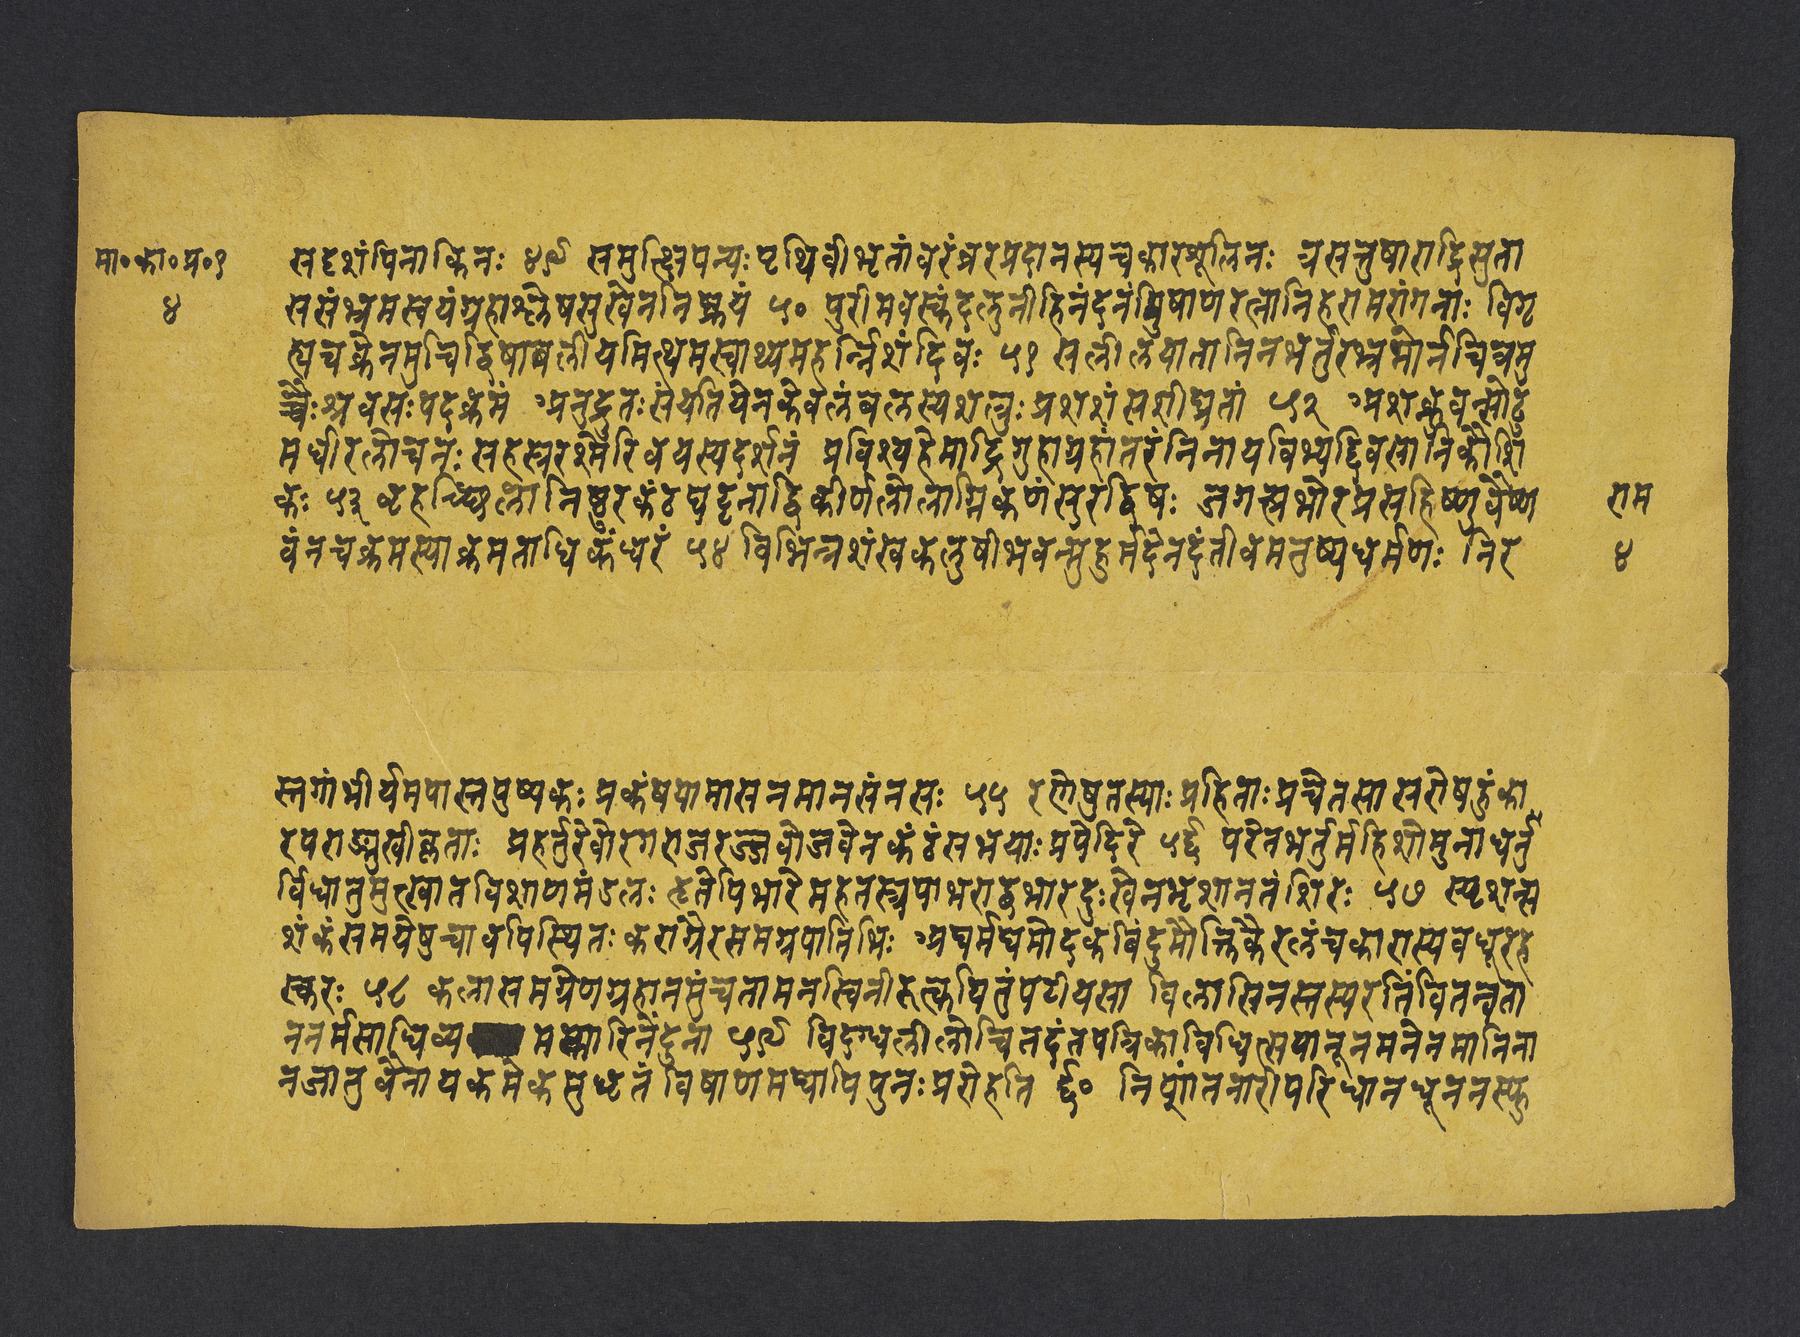 सदृशंपिनाकिनः ४९ समुत्क्षिपन्यः पृथिवीभृतांवरंवरप्रदानस्यचकारशूलिनः त्रसत्तुषाराद्रिसुता
मा॰का॰प्र॰१
४
ससंभ्रमस्वयंग्रहाश्लेषसुखेननिष्क्रयं ५० पुरीमवस्कंदलुनीहिनंदनंमुषाणरत्नानिहरामरांगनाः विगृ
ह्यचक्रेनमुचिद्विषाबलीयमित्थमस्वाथ्यमहर्न्निशंदिवः ५१ सलीलयातानिनभर्तुरभ्रमोर्नचित्रमु
च्चैःश्रवसःपदक्रमं अनुद्रुतःसंयतियेनकेवलंबलस्यशत्रुः प्रशशंसशीघ्रतां ५२ अशक्नुवन्सोढु
मधीरलोचनः सहस्ररश्मेरिवयस्यदर्शनं प्रविश्यहेमाद्रिगुहागृहांतरंनिनायबिभ्यद्दिवसानिकौशि
कः ५३ बृहच्छिलानिष्ठुरकंठघट्टनाद्विकीर्णलोलाग्निकणंसुरद्विषः जगत्प्रभोरप्रसहिष्णुवैष्ण
वंनचक्रमस्याक्रमताधिकंधरं ५४ विभिन्नशंखकलुषीभवन्मुहुर्मदेनदंतीवमनुष्यधर्मणः निर
राम
४
स्तगांभीर्यमपास्तपुष्पकः प्रकंपयामासनमानसंनसः ५५ रणेषुतस्याः प्रहिताःप्रचेतसासरोषहुंका
रपराङ्मुखीकृताः प्रहर्तुरेवोरगराजरज्जवोजवेनकंठंसभयाःप्रपेदिरे ५६ परेतभर्तुर्महिषोमुनाधनु
र्विधातुमुत्खातविशाणमंडलः हृतेपिभारेमहतस्त्रपाभराद्धभारदुःखेनभृशाननंशिरः ५७ स्पृशन्स
शंकंसमयेषुचावपिस्थितः कराग्रैरसमग्रपातिभिः अघर्मघर्मोदकबिंदुमौक्तिकैरलंचकारास्यवधूरह
स्करः ५८ कलासमग्रेणगृहानमुंचतामनस्विनीरुत्कयितुंपटीयसा विलासिनस्तस्यरतिंवितन्वता
ननर्मसाधिव्य मकारिनेंदुना ५९ विदग्धलीलोचितदंतपत्रिकाविधित्सयानूनमनेनमानिना
नजातुवैनायकमेकमुद्धृतंविषाणमद्यापिपुनःप्ररोहति ६० निशांतनारीपरिधानधूननस्फु